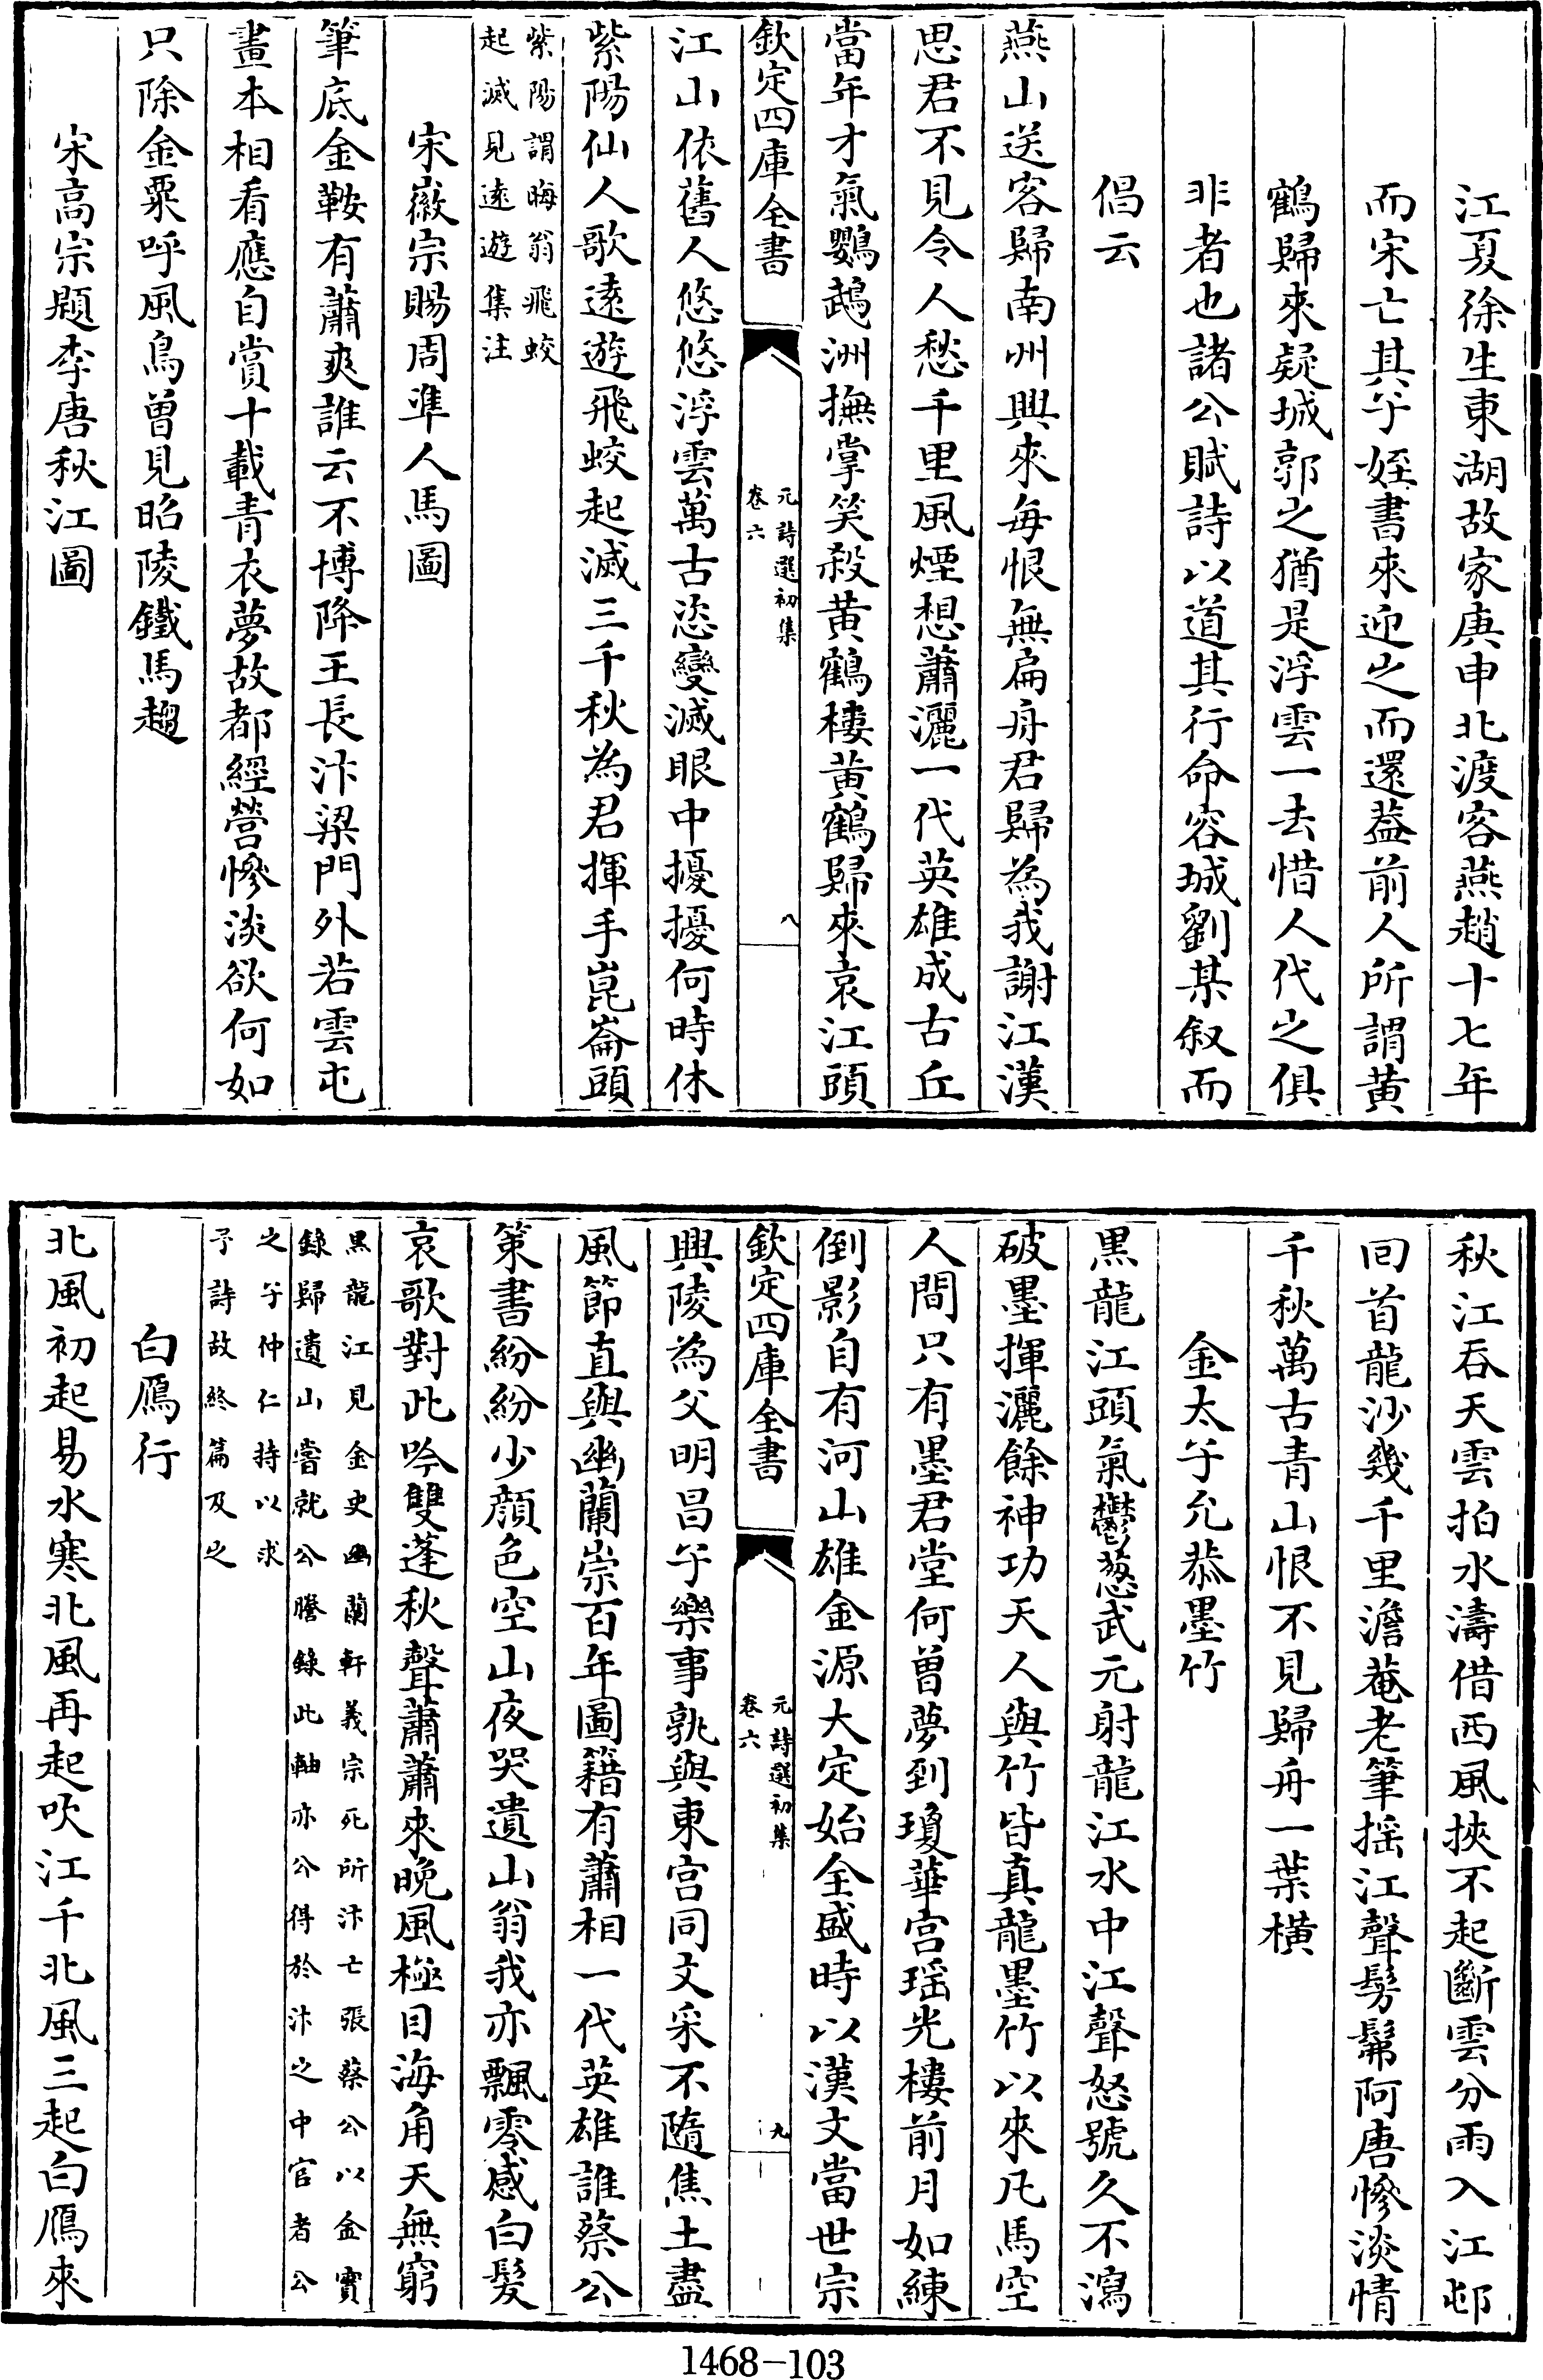 江夏徐生東湖故家庚申北渡客燕趙十七年
而宋亡其子姪書來迎之而還葢前人所謂黄
鶴歸來疑城郭之猶是浮雲一去惜人代之俱
非者也諸公賦詩以道其行命容城劉某叙而
倡云
燕山送客歸南州興來每恨無扁舟君歸為我謝江漢
思君不見令人愁千里風煙想蕭灑一代英雄成古丘
當年才氣鸚鵡洲撫掌笑殺黄鶴樓黄鶴歸來哀江頭
欽定四庫全書
元詩選初集
卷六
八
江山依舊人悠悠浮雲萬古恣變滅眼中擾擾何時休
紫陽仙人歌遠遊飛蛟起滅三千秋為君揮手崑崙頭
紫陽謂晦翁飛蛟
起滅見遠遊集注
宋徽宗賜周準人馬圖
筆底金鞍有蕭爽誰云不博降王長汴梁門外若雲屯
畫本相看應自賞十載青衣夢故都經營慘淡欲何如
只除金粟呼風鳥曾見昭陵鐵馬趨
宋高宗題李唐秋江圖
秋江吞天雲拍水濤借西風挾不起斷雲分雨入江邨
回首龍沙幾千里澹菴老筆揺江聲髣髴阿唐慘淡情
千秋萬古青山恨不見歸舟一葉橫
金太子允恭墨竹
黒龍江頭氣鬱葱武元射龍江水中江聲怒號久不瀉
破墨揮灑餘神功天人與竹皆真龍墨竹以來凡馬空
人間只有墨君堂何曾夢到瓊華宫瑶光樓前月如練
倒影自有河山雄金源大定始全盛時以漢文當世宗
欽定四庫全書
元詩選初集
卷六
九
興陵為父明昌子樂事孰與東宫同文采不隨焦土盡
風節直與幽蘭崇百年圖籍有蕭相一代英雄誰蔡公
策書紛紛少顔色空山夜哭遺山翁我亦飄零感白髮
哀歌對此吟雙蓬秋聲蕭蕭來晚風極目海角天無窮
黒龍江見金史幽蘭軒義宗死所汴亡張蔡公以金實
錄歸遺山嘗就公謄錄此軸亦公得於汴之中官者公
之子仲仁持以求
予詩故終篇及之
白鴈行
北風初起易水寒北風再起吹江干北風三起白鴈來
1468-103